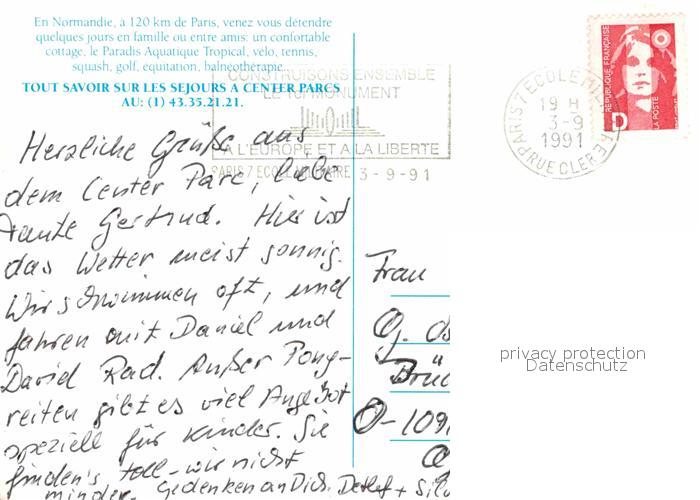 En Normandie, à 120 km de Paris, venez vous détendre
quelques jours en famille ou entre amis: un confortable
cottage, le Paradis Aquatique Tropical, vélo, tennis,
squash, golf, equitation, balneothérapie...
TOUT SAVOIR SUR LES SEJOURS A CENTER PARCS
AU: (1) 43.35.21.21.
CONSTRUISONS ENSEMBLE
LE MONUMENT
A L'EUROPE ET A LA LIBERTE
PARIS 7 ECOLE MILITAIRE 3-9-91
PARIS 7 ECOLE MILITAIRE
19 H
3-9
1991
RUE CLER
REPUBLIQUE FRANÇAISE
LA POSTE
D
Herzliche Grüße aus
dem Center Parc, liebe
Tante Gertrud. Hier ist
das Wetter meist sonnig.
Wir schwimmen oft, und
fahren mit Daniel und
David Rad. Außer Pony-
reiten gibt es viel Angebot
speziell für Kinder. Sie
finden's toll - wir nicht
minder. Gedenken an Dich. Detlef + Silv
Frau
G.
Brüc
O-109
privacy protection
Datenschutz